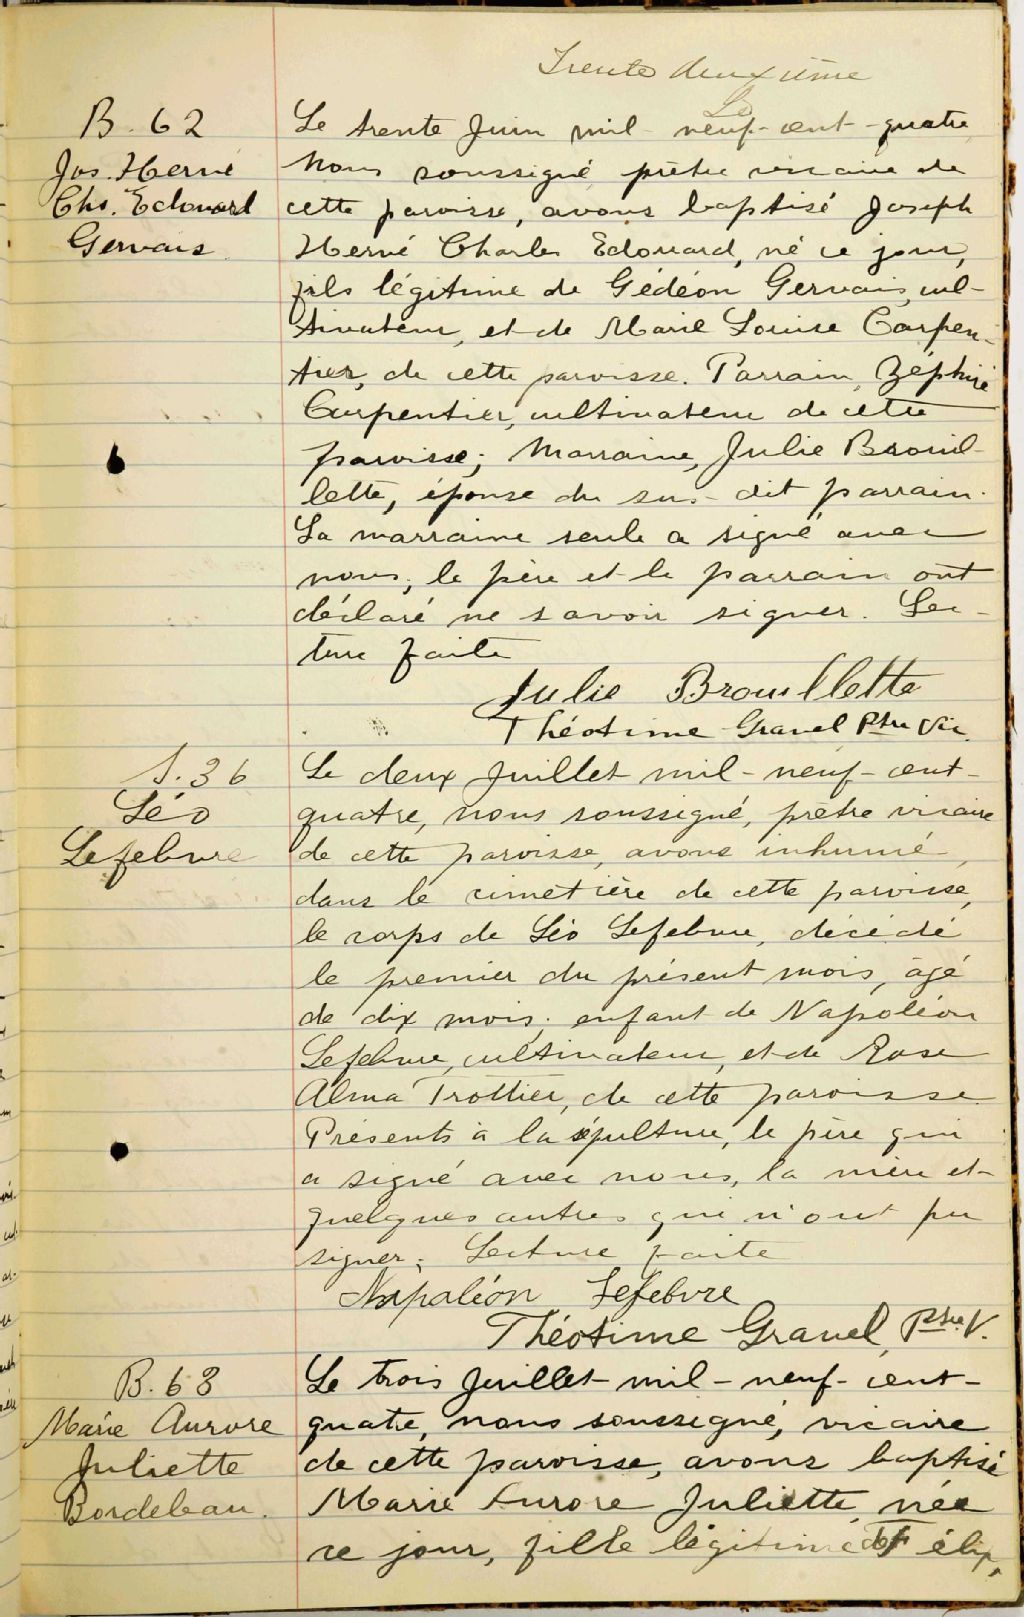 Trente deuxième
Le
B. 62
Jos. Hervé
Chs. Edouard
Gervais.
Le trente Juin mil-neuf-cent-quatre,
Nous soussigné prêtre vicaire de
cette paroisse, avons baptisé Joseph
Hervé Charles Edouard, né ce jour,
fils légitime de Gédéon Gervais, cul-
tivateur, et de Marie Louise Carpen-
tier, de cette paroisse. Parrain, Zéphire
Carpentier, cultivateur de cette
paroisse; Marraine, Julie Brouil-
lette, épouse du sus-dit parrain.
La marraine seule a signé avec
nous; le père et le parrain ont
déclaré ne savoir signer. Lec-
ture faite
Julie Brouillette
Théotime Gravel Ptre Vic.
S. 36
Léo
Lefebvre
Le deux Juillet mil-neuf-cent-
quatre, nous soussigné, prêtre vicaire
de cette paroisse, avons inhumé,
dans le cimetière de cette paroisse,
le corps de Léo Lefebvre, décédé
le premier du présent mois, âgé
de dix mois; enfant de Napoléon
Lefebvre, cultivateur, et de Rose
Alma Trottier, de cette paroisse.
Présents à la sépulture, le père qui
a signé avec nous, la mère et
quelques autres qui n'ont pu
signer; Lecture faite
Napoléon Lefebvre
Théotime Gravel, Ptre. V.
B. 63
Marie Aurore
Juliette
Bordeleau.
Le trois Juillet mil-neuf-cent-
quatre, nous soussigné, vicaire
de cette paroisse, avons baptisé
Marie Aurore Juliette, née
ce jour, fille légitime de Félix,